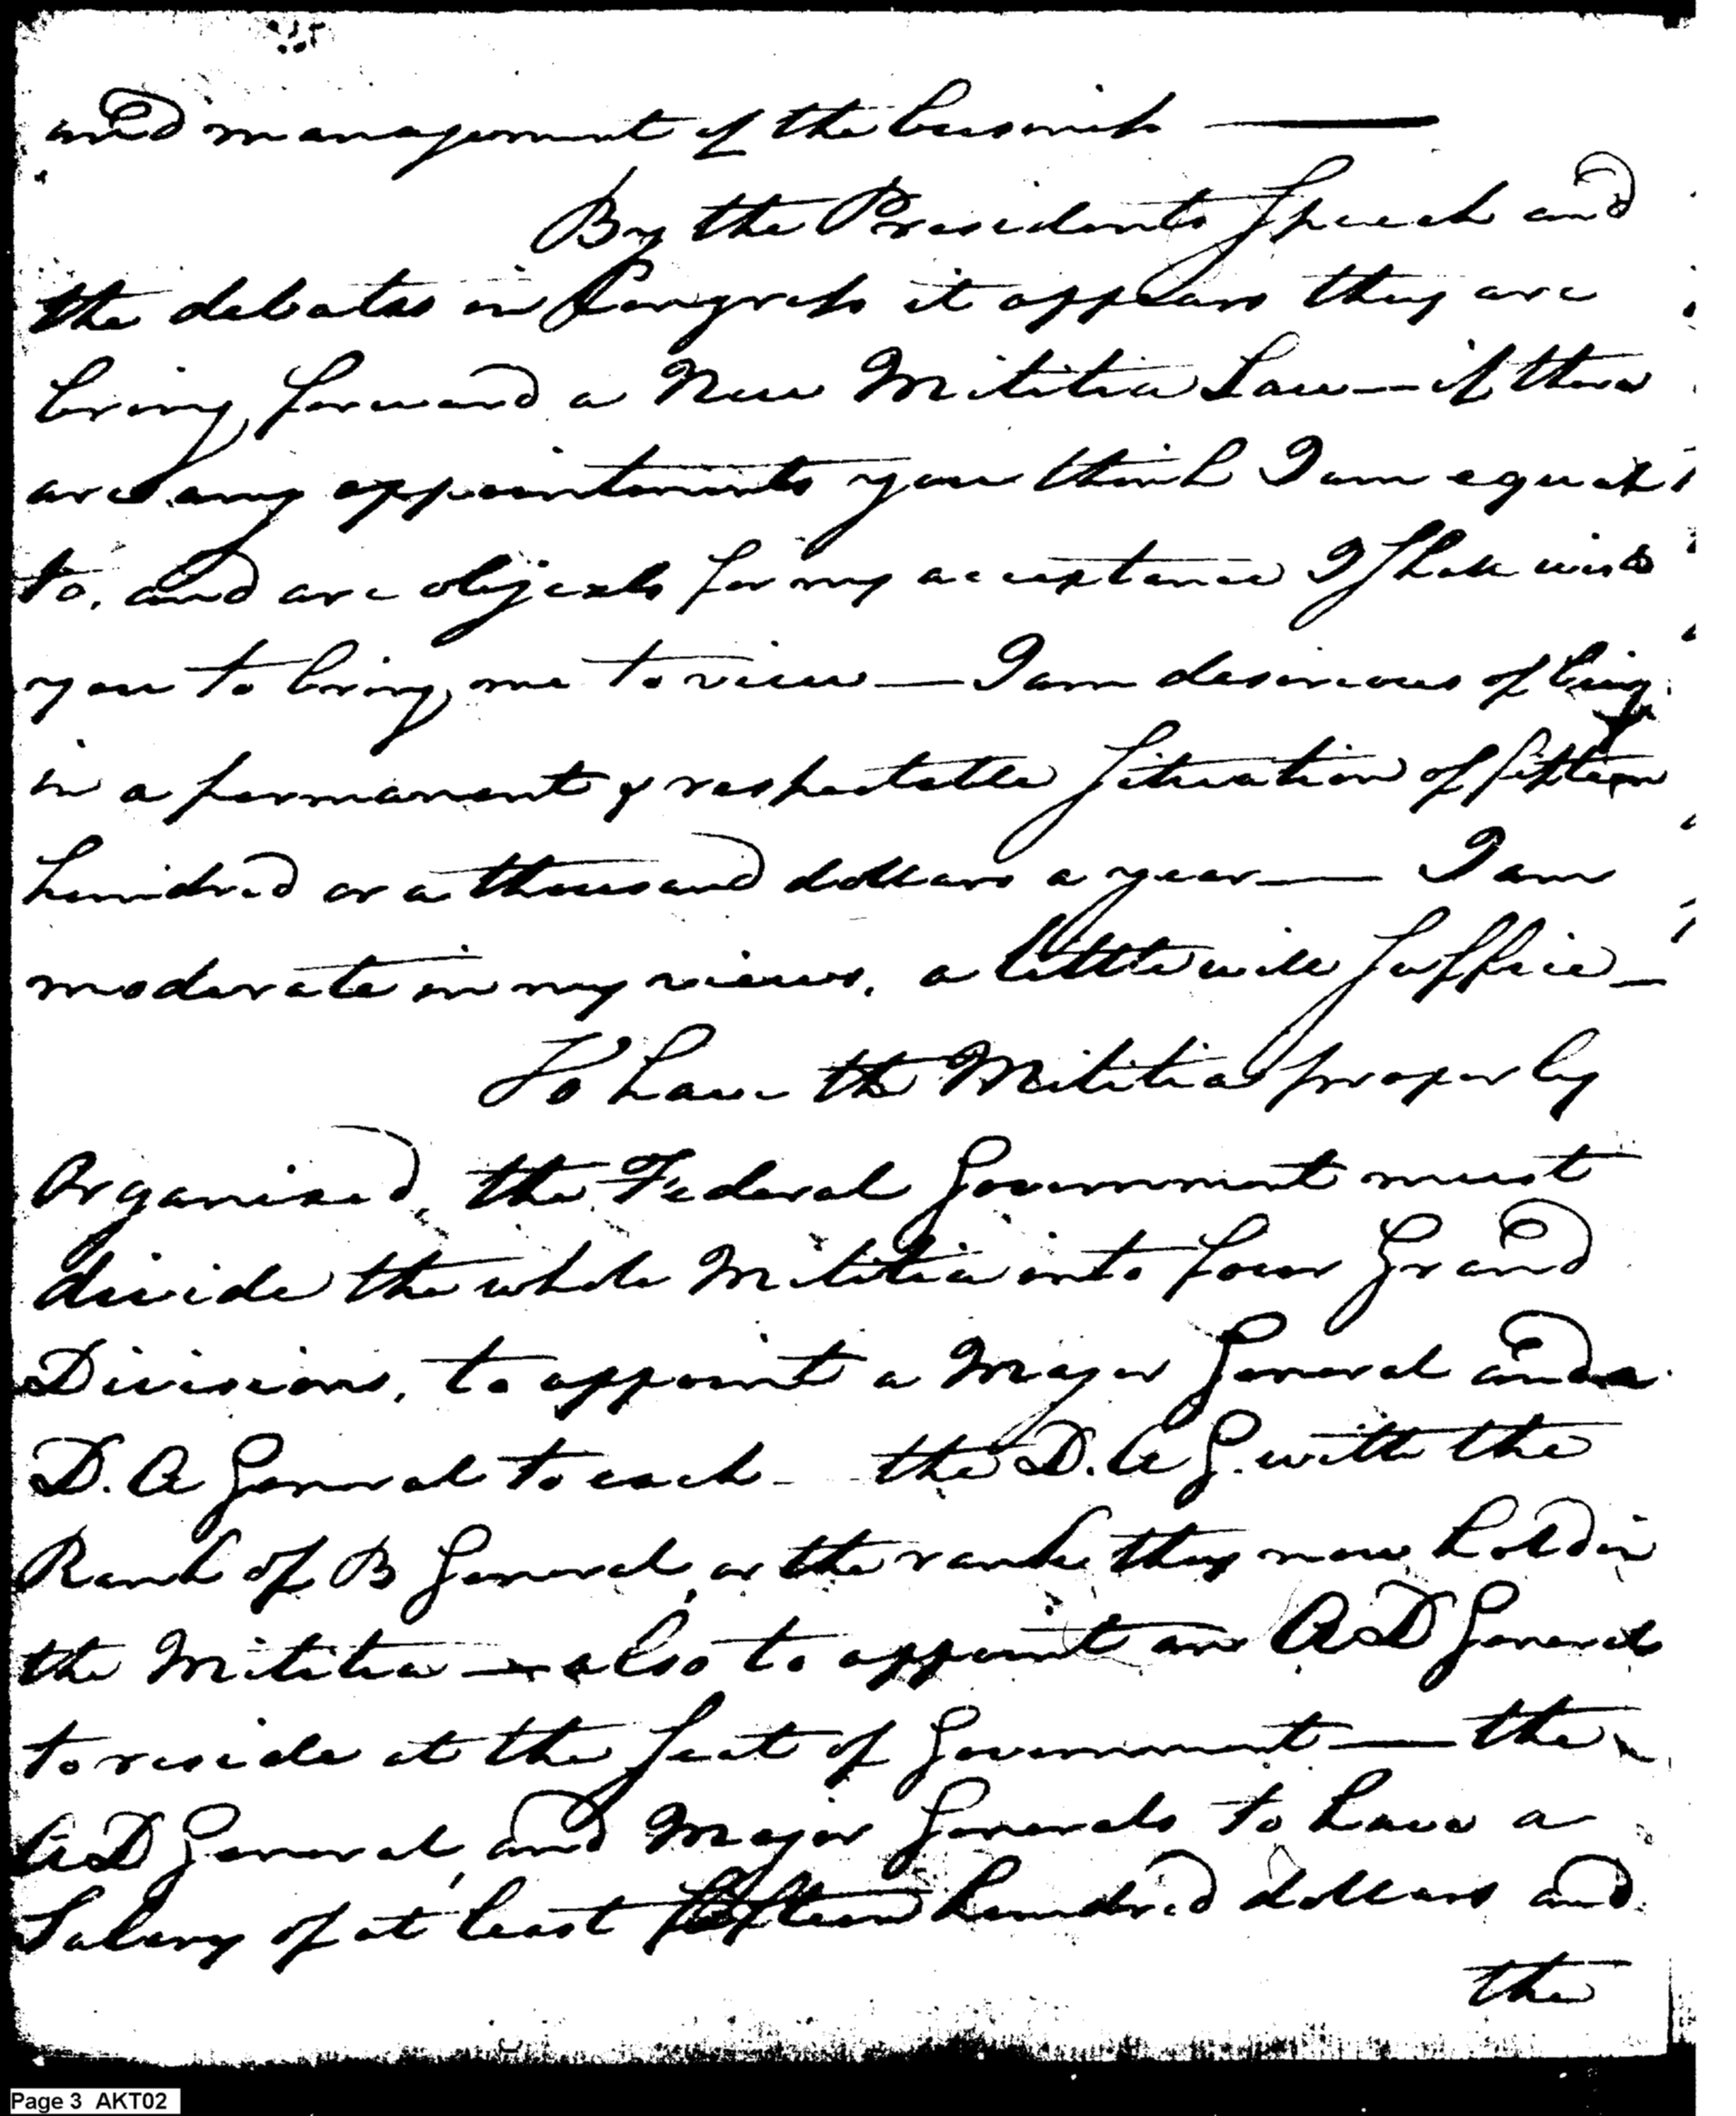 and management of the business ———
By the Presidents Speech and
the debates in Congress it appears they are
bring forward a New Militia Law — if there
are any appointments you think I am equal
to, and are objects for my acceptance I shall wish
you to bring me to view — I am desireous of being
in a permanent & respectable Situation of fifteen
hundred or a thousand dollars a year — I am
moderate in my views, a little will Suffice —
To have the Militia properly
Organised, the Federal Government must
divide the whole Militia into four Grand
Divisions, to appoint a Major General and a
D. A General to each - the D. A G. with the
Rank of B General, or the rank they now hold in
the Militia — also to appoint an A D General
to reside at the Seat of Government — the
A D General, and Major Generals to have a
Salary of at least fifteen hundred dollars and
the
Page 3 AKT02